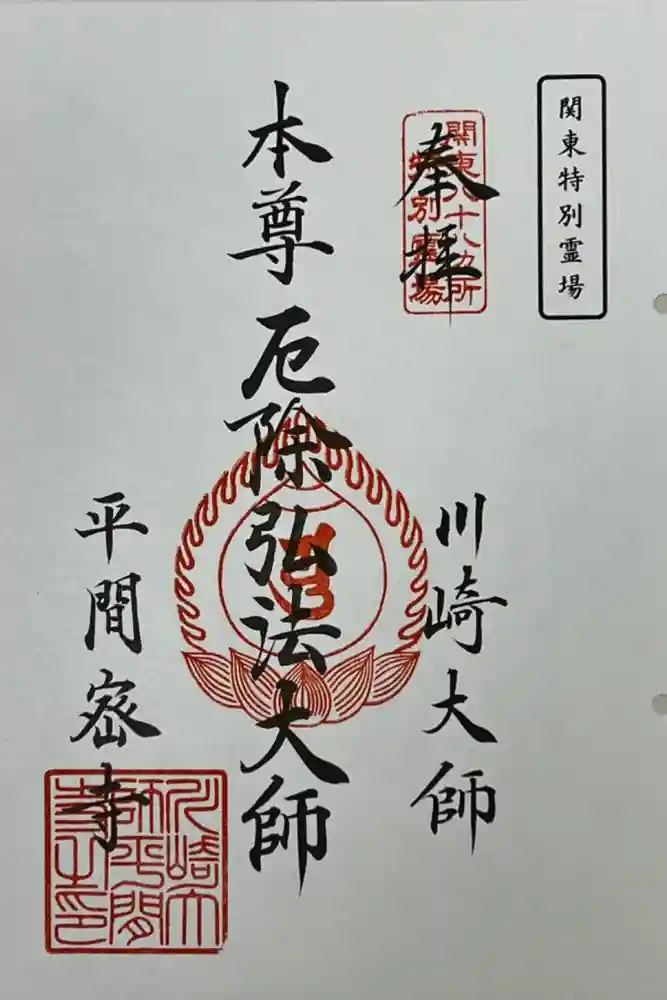 関東特別霊場
奉拝
関東八十八カ所
特別霊場
川崎大師
本尊厄除弘法大師
平間寺
川崎大
師平間
寺之印